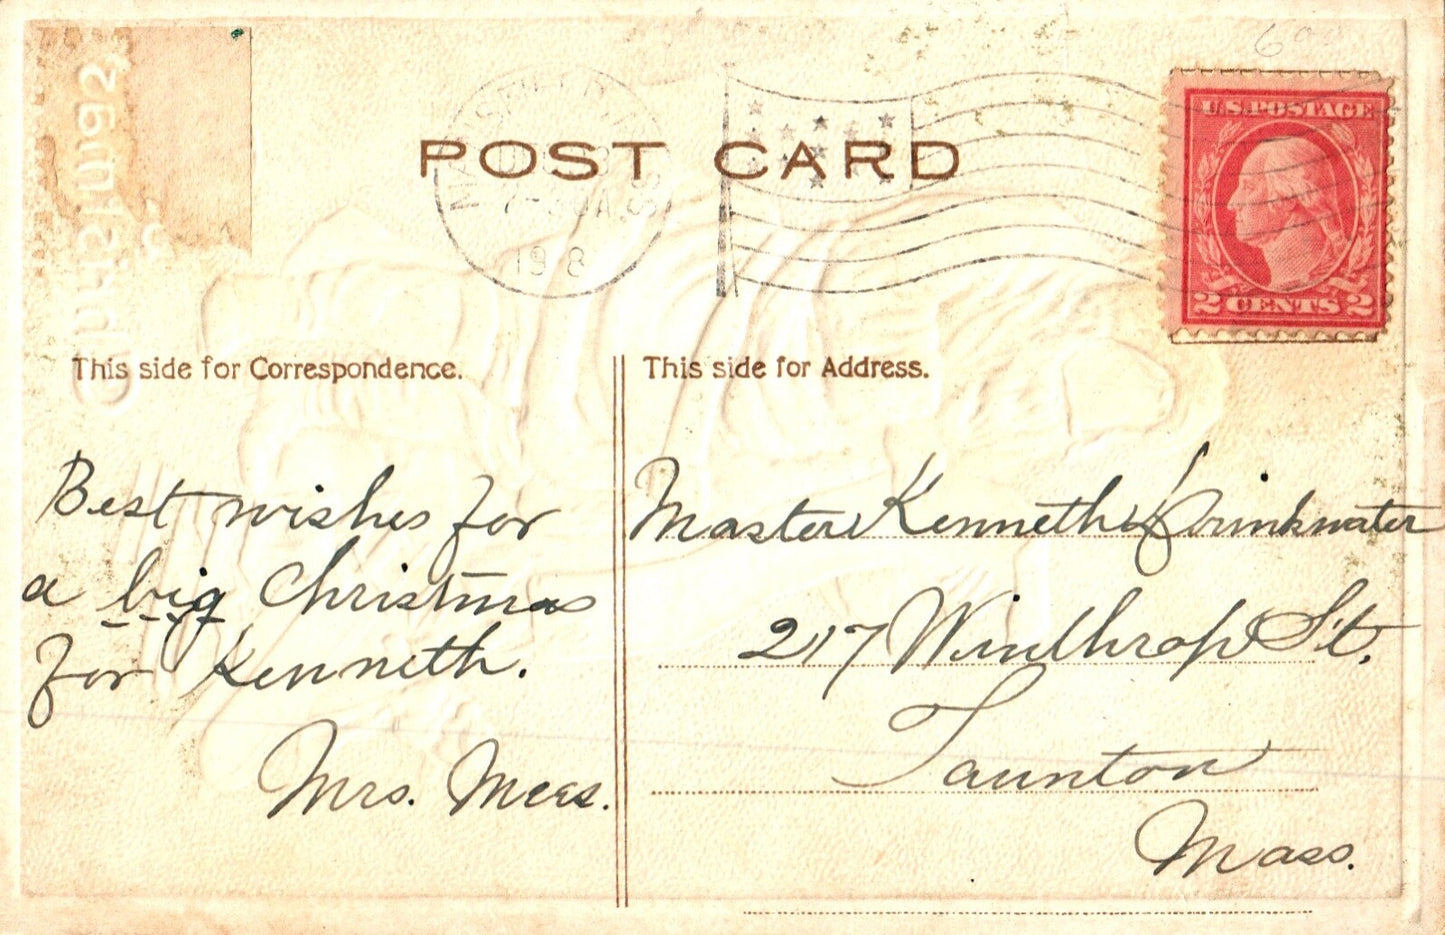 POST CARD
U.S. POSTAGE
2 CENTS 2
19 8
This side for Correspondence.
This side for Address.
Best wishes for
a big Christmas
for Kenneth.
Mrs.
Master Kenneth Drinkwater
217 Winthrop St.
Taunton
Mass.